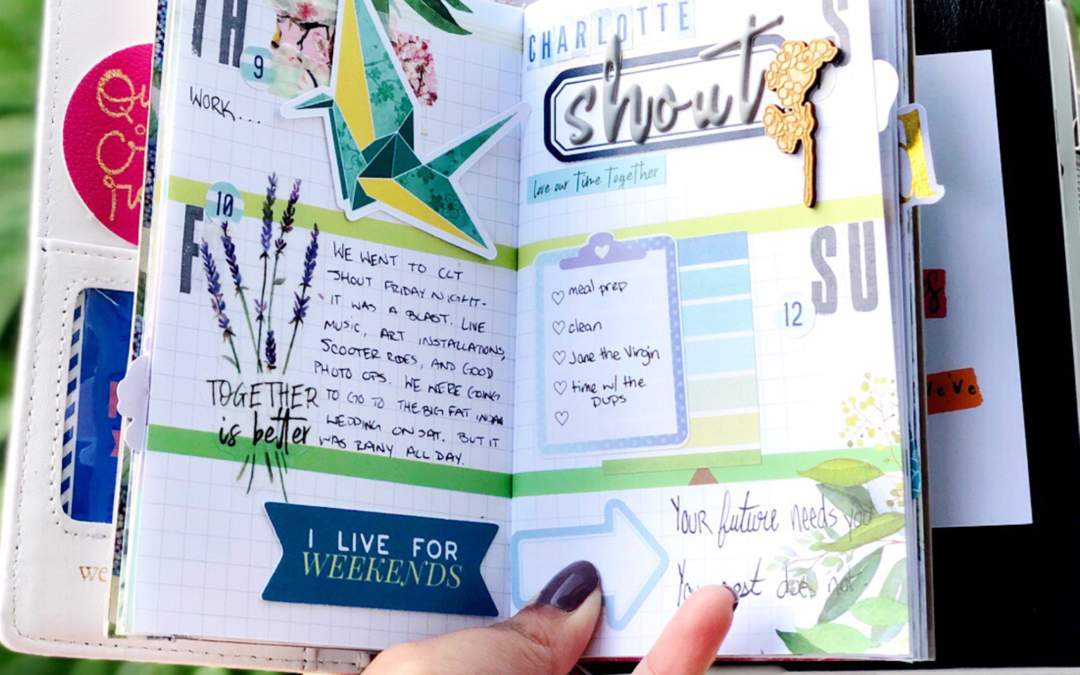 TH
9
WORK...
10
F
WE WENT TO CLT
SHOUT FRIDAY NIGHT-
IT WAS A BLAST. LIVE
MUSIC, ART INSTALLATIONS,
SCOOTER RIDES, AND GOOD
PHOTO OPS. WE WERE GOING
TO GO TO THE BIG FAT INDIAN
WEDDING ON SAT. BUT IT
WAS RAINY ALL DAY.
TOGETHER
is better
I LIVE FOR
WEEKENDS
we
CHARLOTTE
S
shout
love our Time Together
SU
12
meal prep
clean
Jane the Virgin
time w/ the
DUPS
Your future needs you
Your past does not
We've